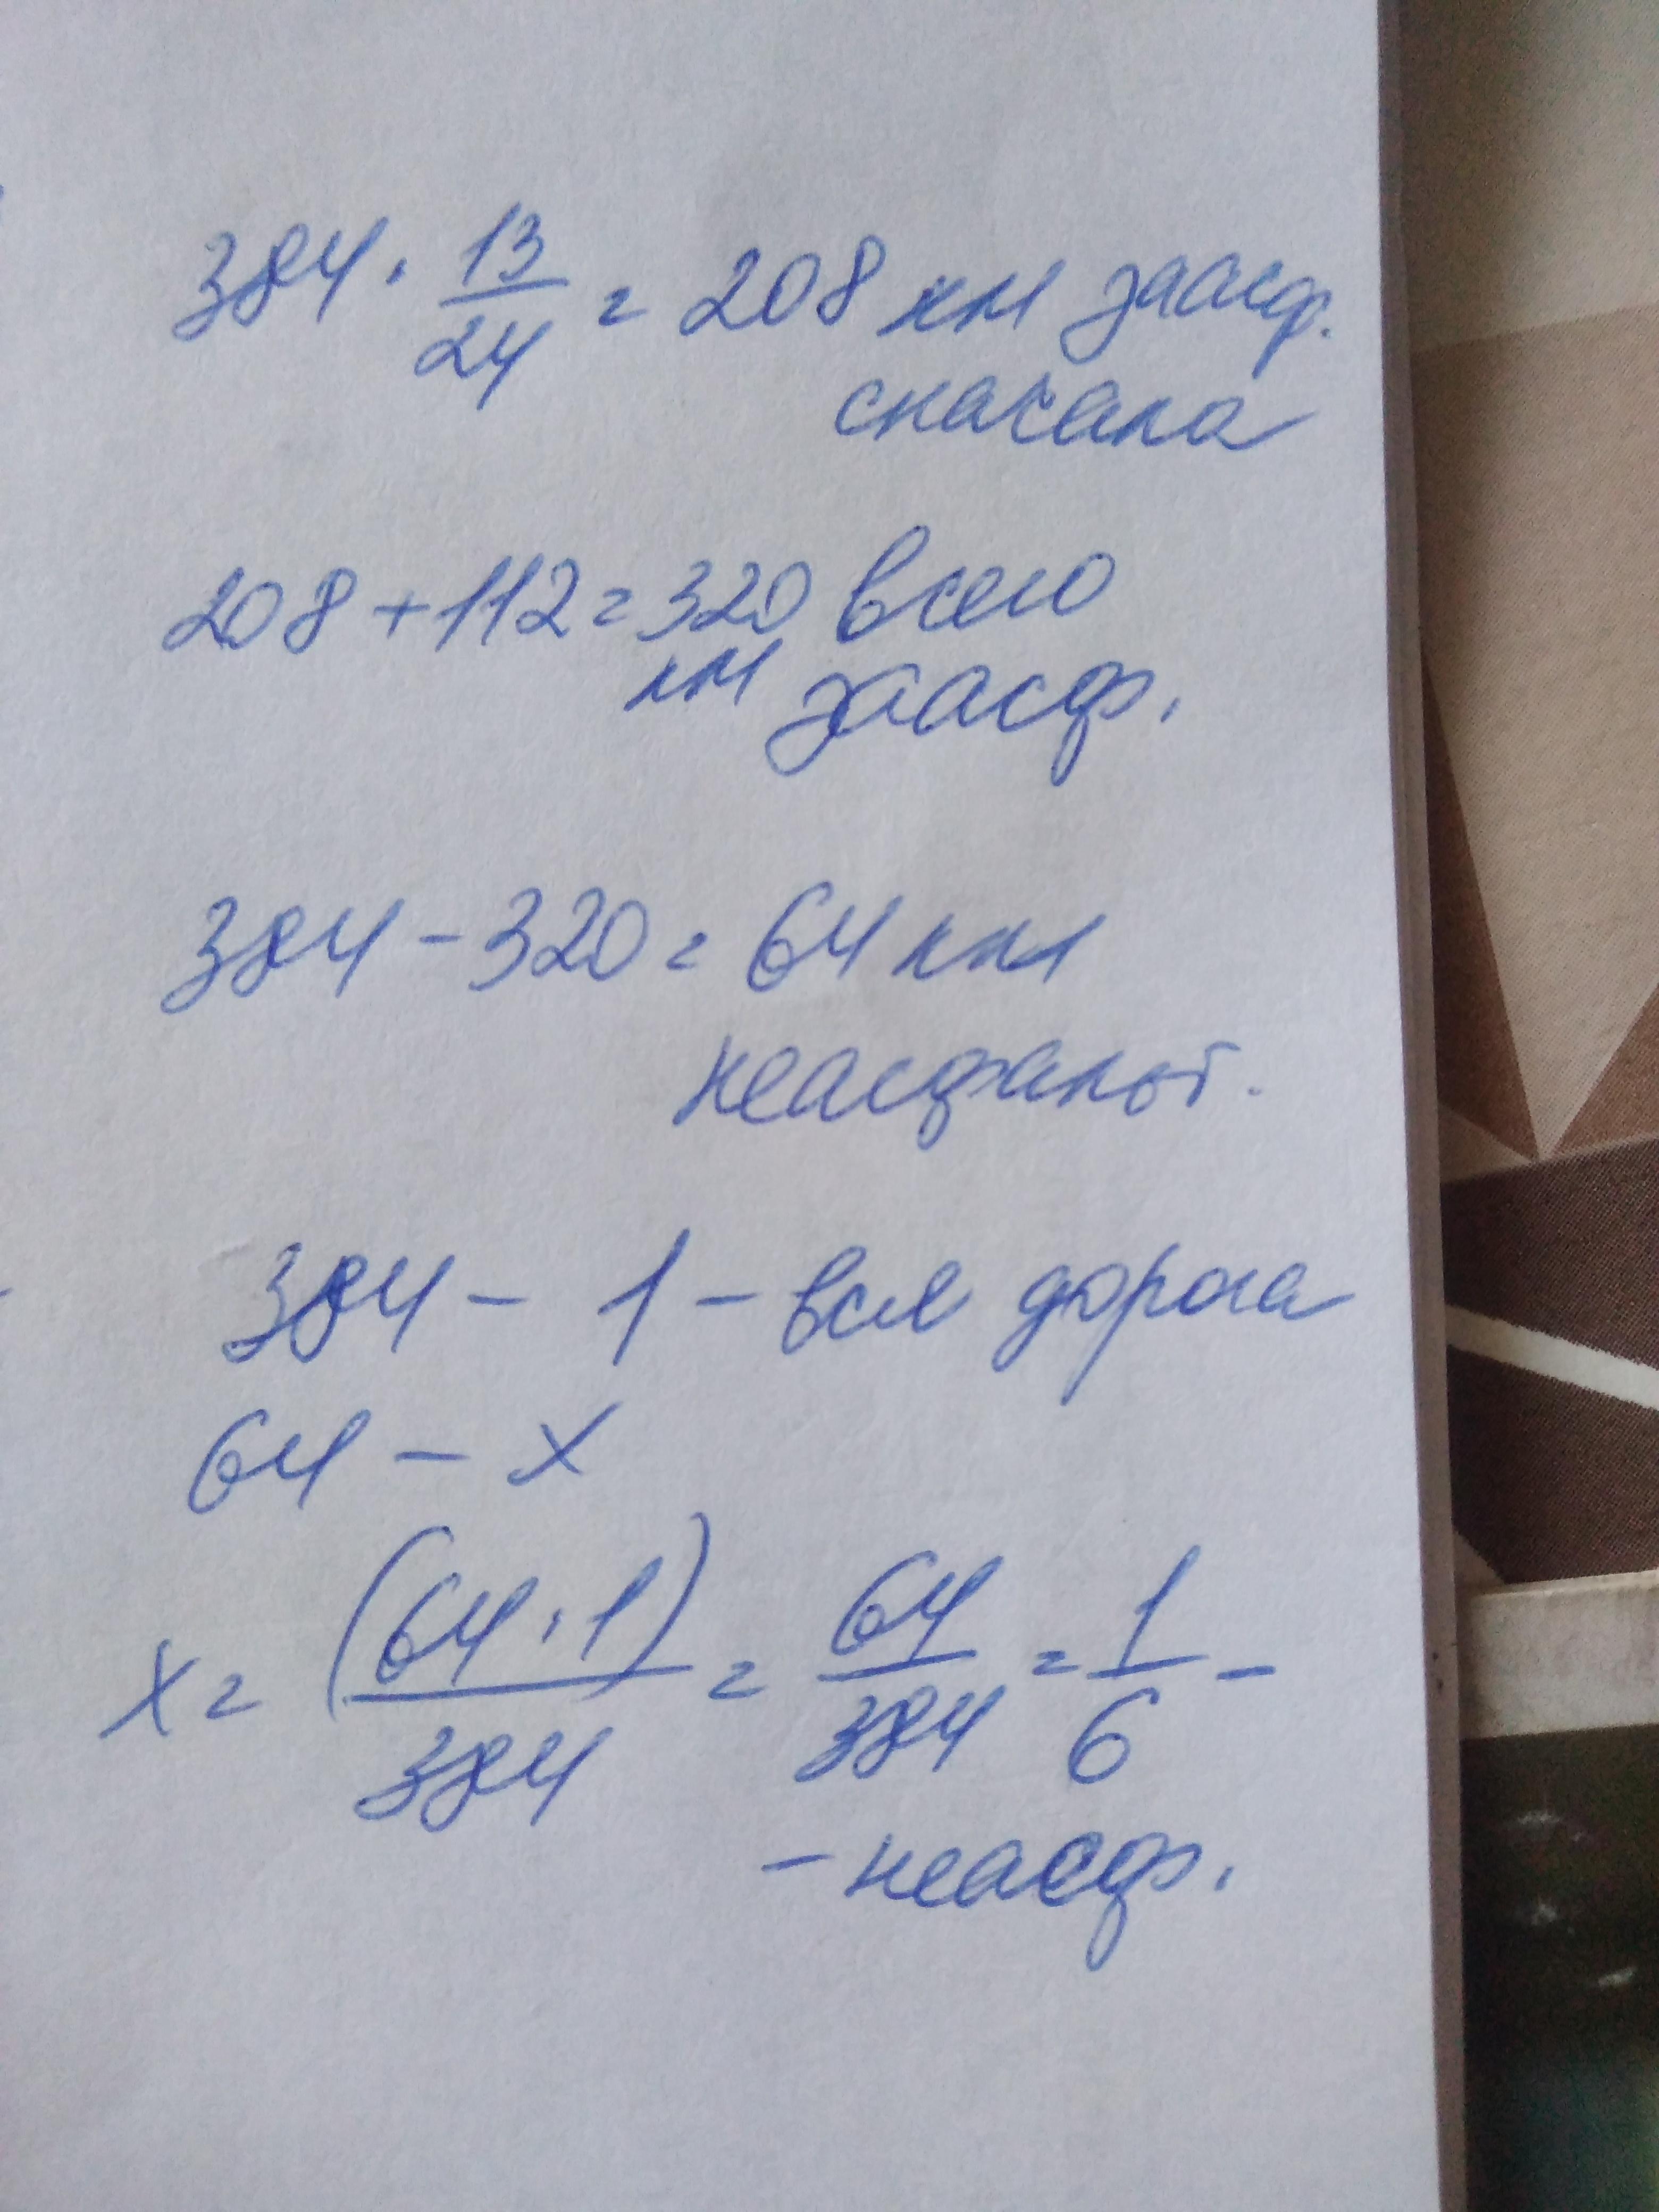 384 · 13/24 = 208 км заасф.
сначала
208 + 112 = 320 всего
км заасф.
384 - 320 = 64 км
неасфальт.
384 - 1 - вся дорога
64 - x
x = (64 · 1)/384 = 64/384 = 1/6 -
- неасф.